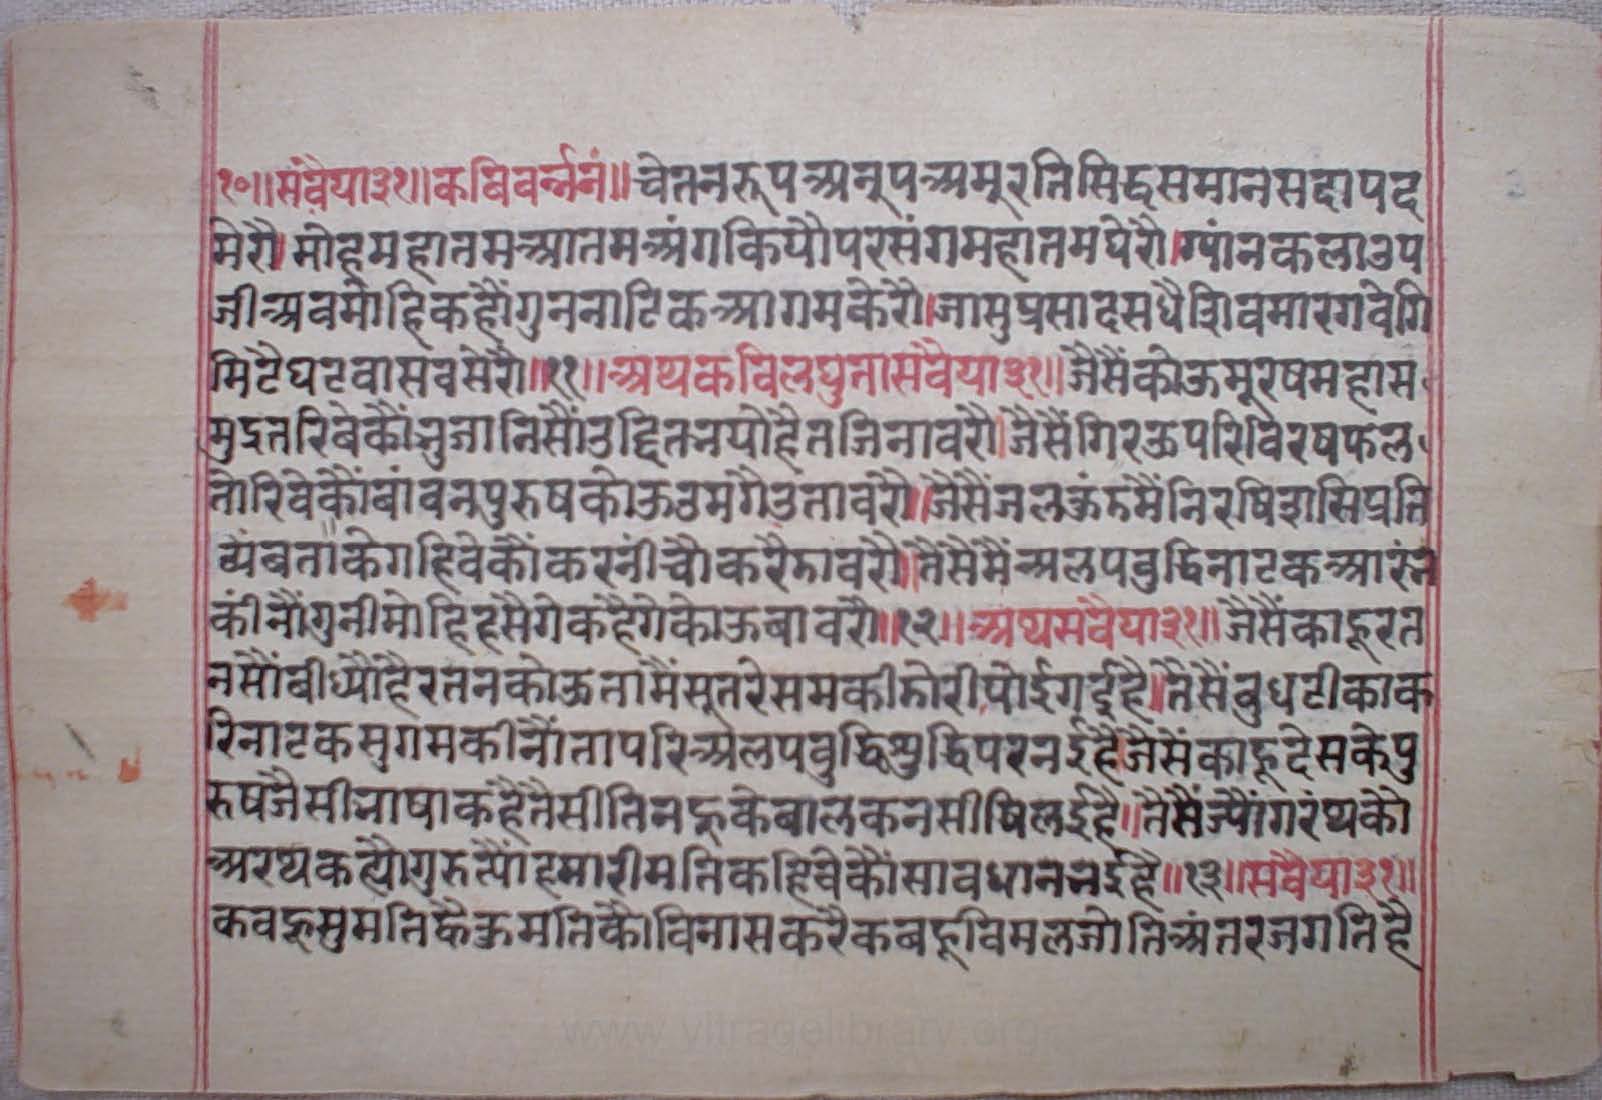 १०॥॥सवैया३१॥॥कविवर्न्ननं॥॥चेतनरूपअनूपअमूरतिसिद्धसमानसदापद
मेरौ।मोहमहातमआतमअंगकियौपरसंगमहातमघेरौ।ग्यांनकलाउप
जीअवमोहिकहौंगुननाटिकआगमकेरौ।जासुप्रसादसधैशिवमारगवेगि
मिटैघटवासवसेरौ॥११॥॥अथकविलघुतासवैया३१॥॥जैसैंकोऊमूरषमहास
मुद्रतरिबेकौंभुजानिसौंउद्दितभयोहैतजिनावरौ।जैसैंगिरऊपरिविरषफल
तोरिवेकौंबांवनपुरुषकोऊउमगैउतावरौ॥जैसैंजलकुंडमैंनिरषिशसिप्रति
ब्यंबताकेगहिवेकौंकरनींचौकरैडावरौ॥तैसेमैंअलपवुद्धिनाटकआरंभ
कींनौंगुनीमोहिहसैगेकहैगेकोऊबावरौ॥१२॥॥अथसवैया३१॥॥जैसैंकाहूरत
नसौंबीध्यौंहैरतनकोऊतामैंसूतरेसमकीडोरीपोईगईहै॥तैसैंवुधटीकाक
रिनाटकसुगमकीनौंतापरिअलपवुद्धिशुद्धिपरनईहै।जैसेंकाहूदेसकेपु
रुषजैसीभाषाकहैतैसीतिनहूकेबालकनसीषिलईहै॥तैसैंज्यौंगरंथकौ
अरथकह्यौगुरुत्यौंहमारीमतिकहिवेकौंसावधानभईहै॥१३॥॥सवैया३१॥॥
कवहूसुमतिह्वैकुमतिकौविनासकरैकबहूविमलजोतिअंतरजगतिहै
www.vitragelibrary.org